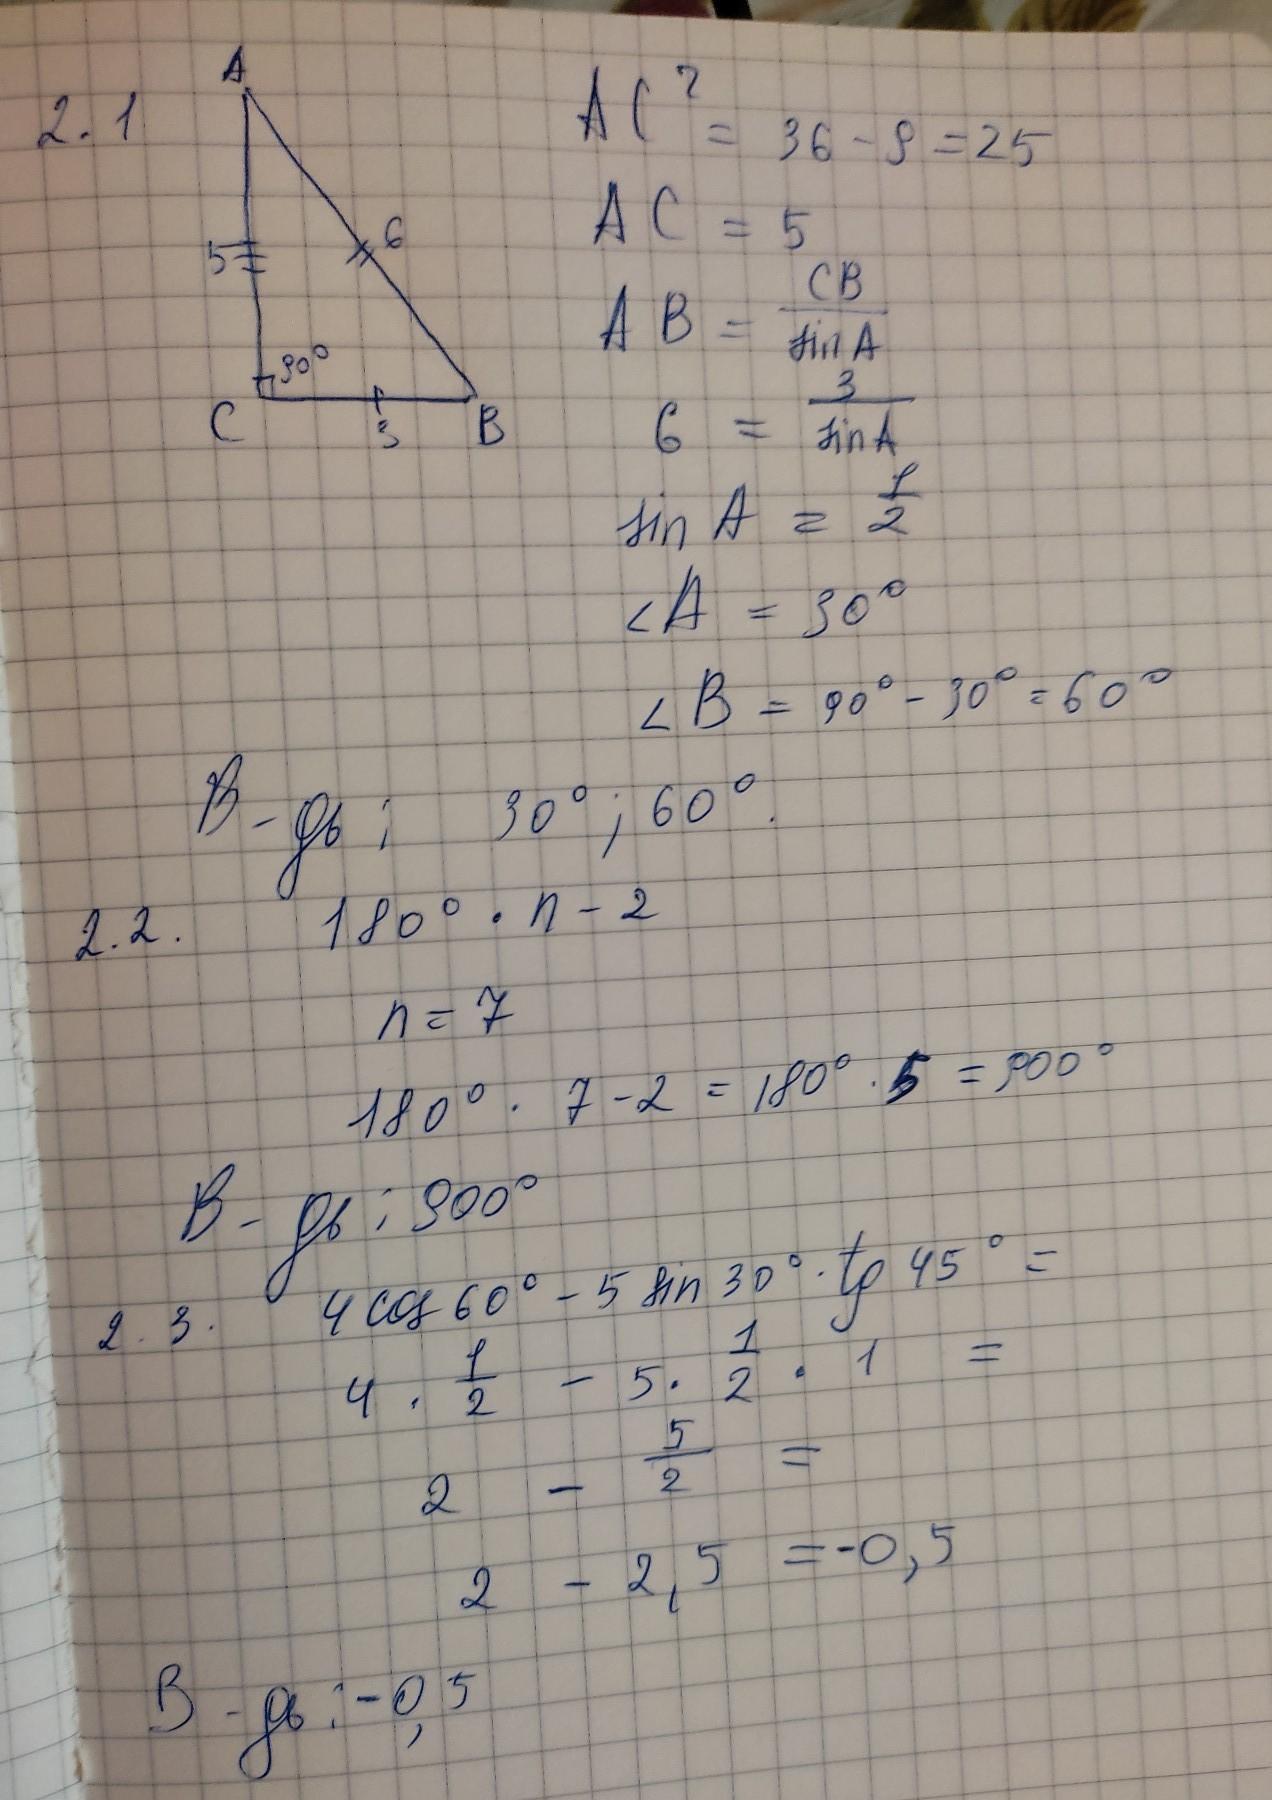 2.1
A
5
6
90°
C
3
B
AC² = 36 - 9 = 25
AC = 5
AB = CB / sin A
6 = 3 / sin A
sin A = 1/2
∠A = 30°
∠B = 90° - 30° = 60°
В-дь: 30°; 60°.
2.2. 180° · n - 2
n = 7
180° · 7 - 2 = 180° · 5 = 900°
В-дь: 900°
2.3. 4 cos 60° - 5 sin 30° · tg 45° =
4 · 1/2 - 5 · 1/2 · 1 =
2 - 5/2 =
2 - 2,5 = -0,5
В-дь: -0,5